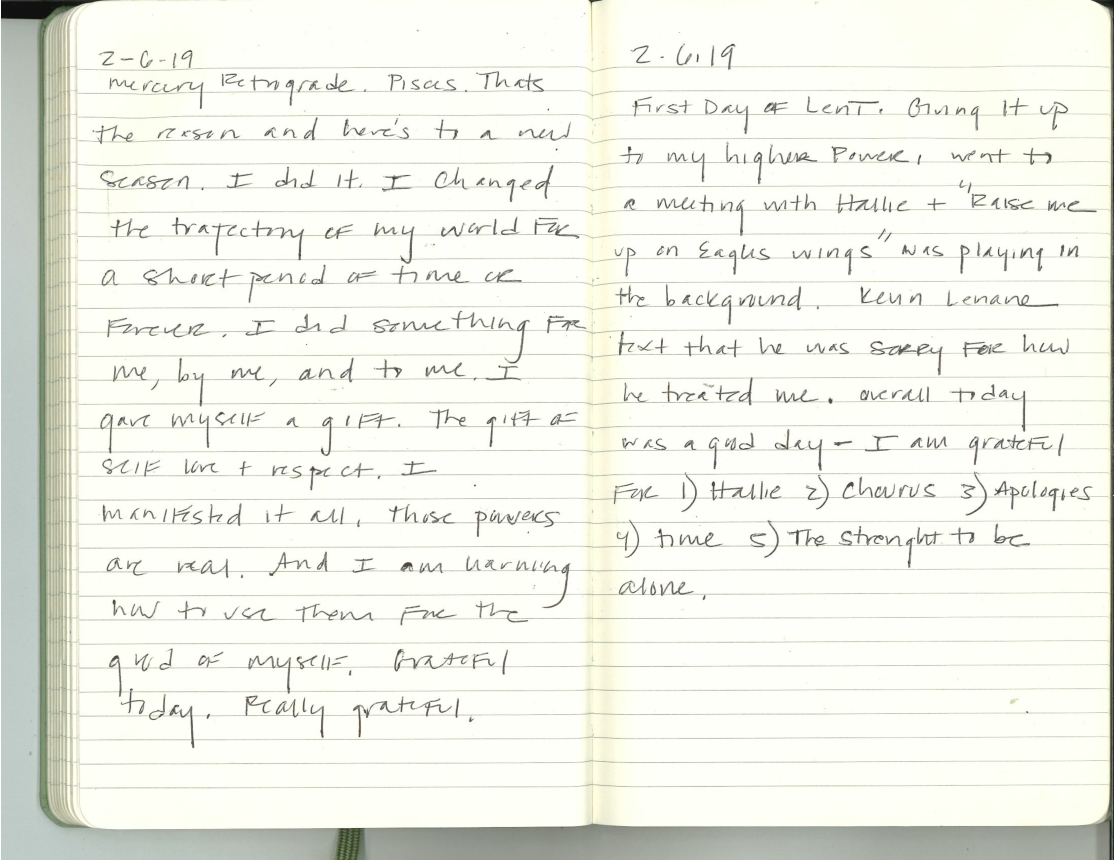 2-6-19
Mercury Retrograde. Pisces. Thats
the reason and here's to a new
season. I did it. I Changed
the trajectory of my world For
a short period of time or
Forever. I did something For
me, by me, and to me. I
gave myself a gift. The gift of
self love + respect. I
manifested it all, those powers
are real. And I am learning
how to use them For the
good of myself. Grateful
today. Really grateful.
2.6.19
First Day of Lent. Giving it up
to my higher Power, went to
a meeting with Hallie + "Raise me
up on Eagles wings" was playing in
the background. Kevin Lenane
text that he was sorry For how
he treated me. overall today
was a good day - I am grateful
For 1) Hallie 2) Chourus 3) Apologies
4) time 5) The strenght to be
alone.